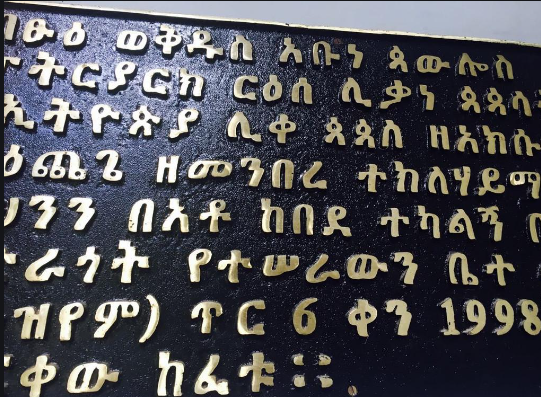 ፁዕ ወቅዱስ አቡነ ጳውሎስ
ትርያርክ ርዕሰ ሊቃነ ጳጳሳ
ኢትዮጵያ ሊቀ ጳጳስ ዘአክሱ
ዕጨጌ ዘመንበረ ተክለሃይማ
ህንን በአቶ ከበደ ተካልኝ በ
ራጎት የተሠራውን ቤተ
ዝየም) ጥር 6 ቀን 1998
ቀው ከፈቱ።